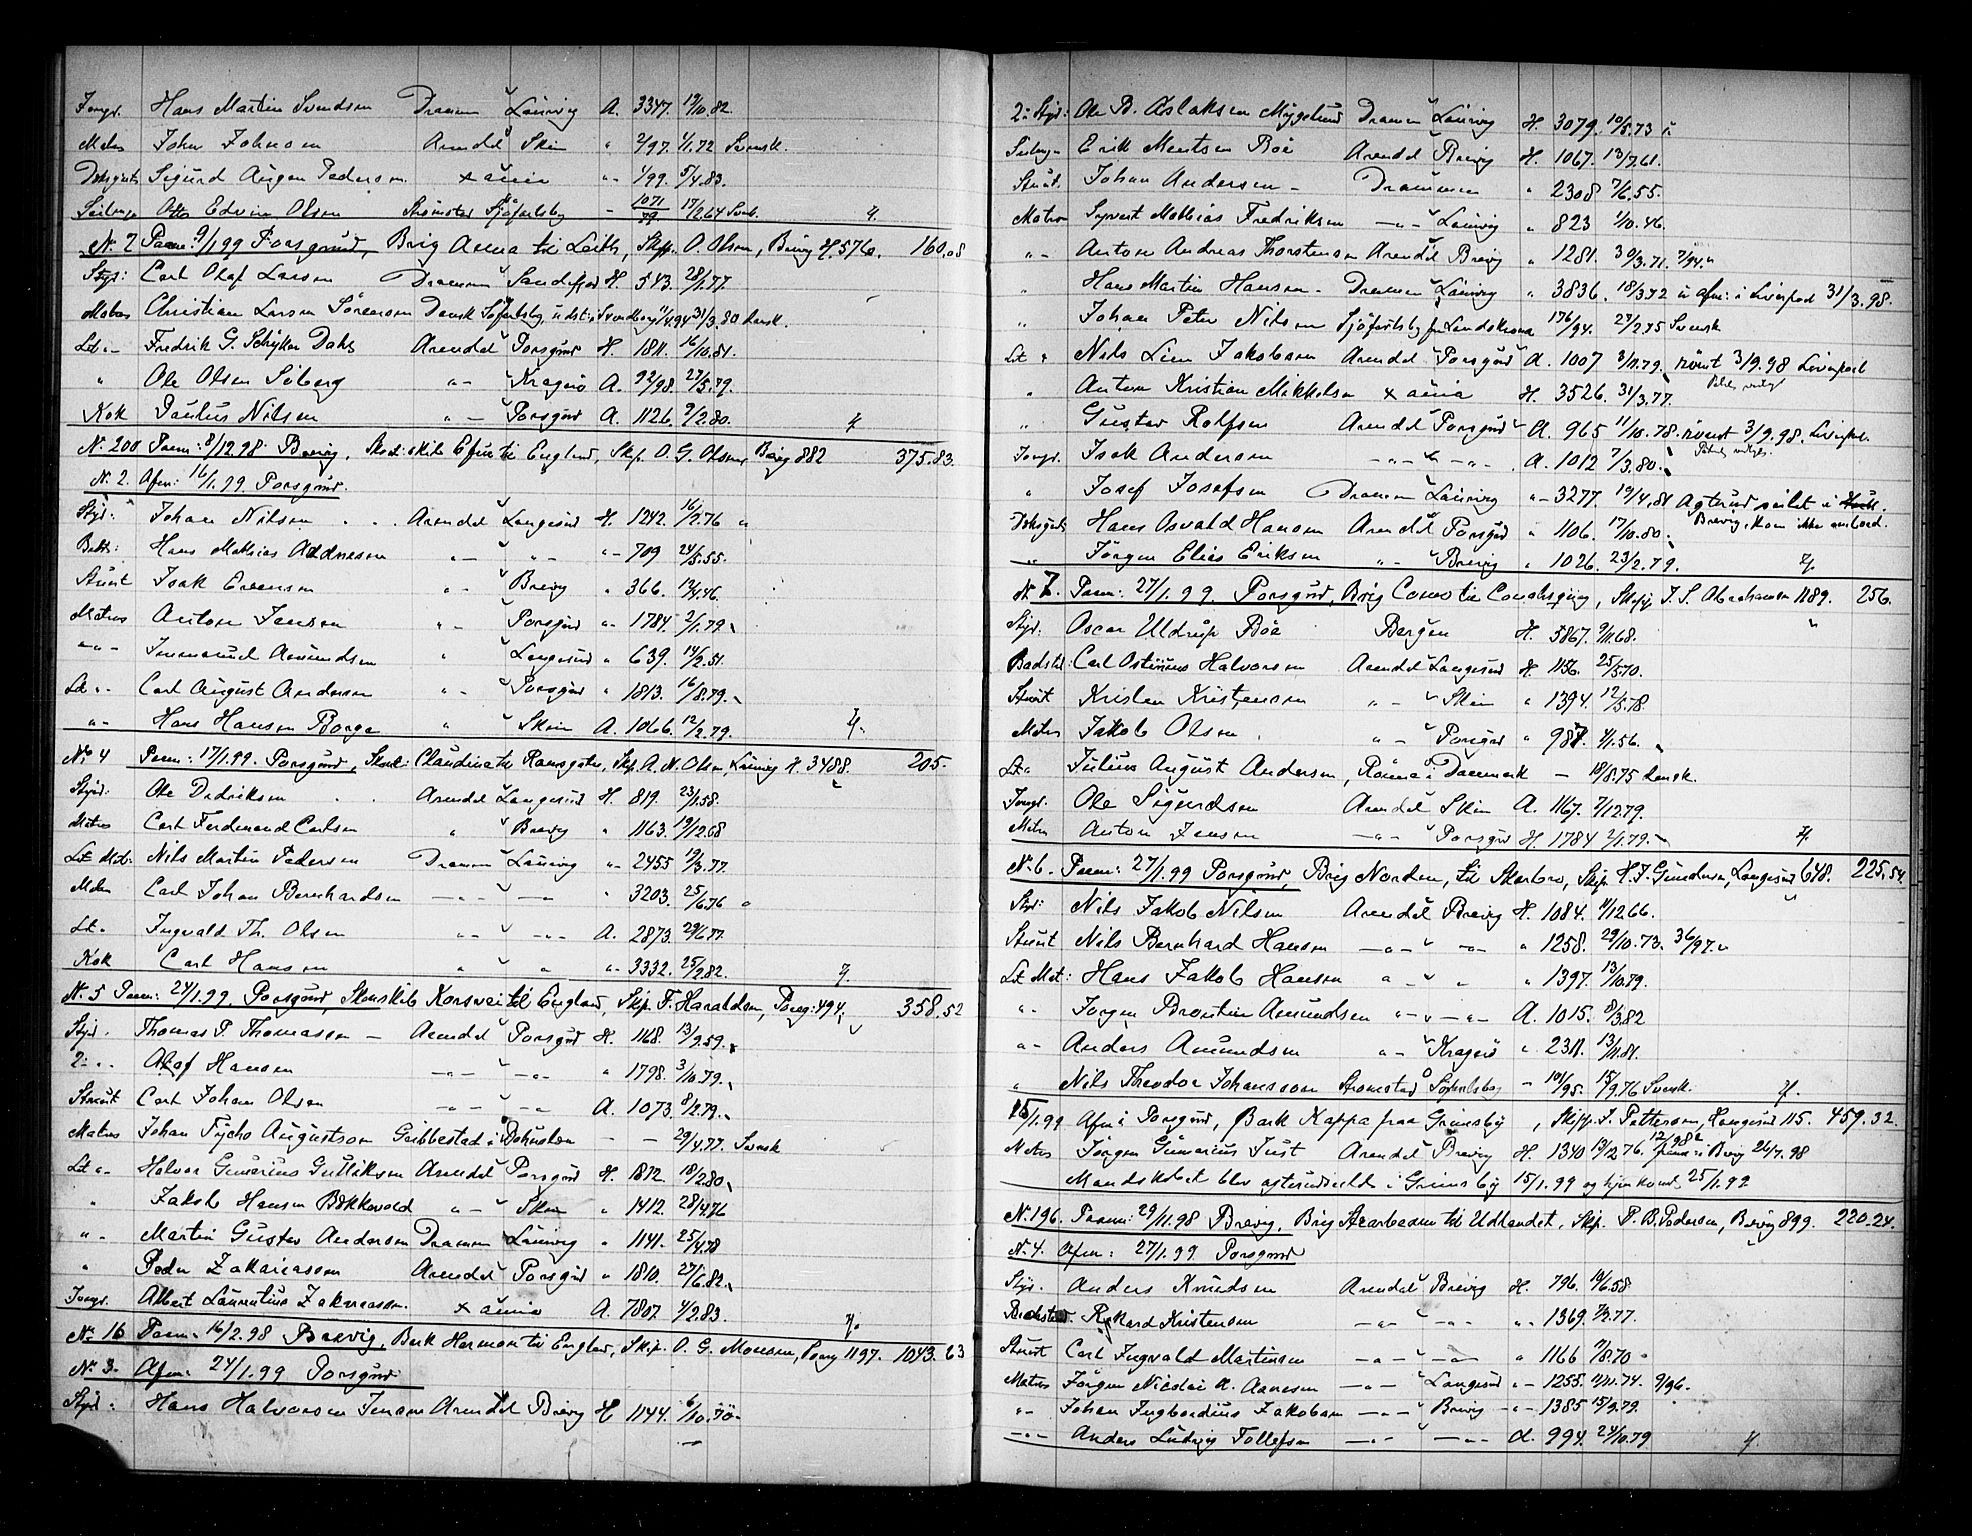 Jungm. Hans Martin Svendsen Drammen Laurvig A. 3347. 19/10.82.
Matros John Johnsen Arendal Skien " 2/97. 1/1.72 Svensk.
Dæksgut Sigurd August Pedersen x amia "- 1/99. 5/4.83.
Seilmager Otto Edvin Olsen Strømstad Sjøfartsby - 1071/79 17/2.64 Svensk. 7.
No 2 Paam: 9/1.99 Porsgrund, Brig Anna til Leith, Skp. O. Olsen, Brevig H. 576. 160.08
Styr: Carl Olaf Larsen Drammen Sandefjord H. 543. 28/1.77.
Matros Christian Larsen Sørensen Dansk Søfartsby udst: i Svendborg 1/4.94 31/3.80 dansk.
Let "- Fredrik G. Schytter Dahl Arendal Porsgrund H. 1811. 16/10.81.
" Ole Olsen Siberg "- Kragerø A. 92/98. 27/5.79.
Kok Paulus Nilsen "- Porsgrd A. 1126. 9/2.80. 7.
No. 200 Paam: 8/12.98 Brevig, til England, Skp. O. G. Olsen, Brevig 882 375.83.
No. 2. Afm: 16/1.99 Porsgrund.
Styr: Johan Nilsen Arendal Langesund H. 1242. 16/2.76 "
Bdst: Hans Mathias Andresen "- "- "- 709 24/5.55.
Stuert Isak Evensen "- Brevig " 366. 12/4.46.
Matros Anton Jensen "- Porsgrd "- 1784. 2/1.79.
"- Immanuel Amundsen " Langesund " 639. 14/2.51.
Let "- Carl August Andersen "- Porsgrd " 1813. 16/8.79.
"- Hans Hansen Borge " Skien A. 1066. 12/2.79. 7.
No 4 Paam: 17/1.99. Porsgrund, Skont: Claudine til Ramsgate, Skp. A. N. Olsen, Laurvig H. 3488. 205.
Styrd: Ole Didriksen Arendal Langesund H. 819. 23/1.58.
Matros Carl Ferdinand Carlsen " Brevig " 1163. 19/12.68
Let Mat. Nils Martin Pedersen Drammen Laurvig "- 2455 19/3.77.
Matros Carl Johan Bernhardsen -"- -"- 3203. 25/6.76
Let " Ingvald Th. Olsen "- "- A. 2873. 29/6.77.
Kok Carl Hansen " " "- 3332. 25/9.82. 7.
No. 5 Paam: 24/1.99. Porsgrund, Skonskib Korsvei til England, Skp. F. Haraldsen, Porsg: 494. 358.52
Styr. Thomas P. Thomassen - Arendal Porsgrd H. 1168. 13/9.59.
2 "- Olaf Hansen -"- -"- " 1798. 3/10.79.
Stuert Carl Johan Olsen -"- -"- A. 1073. 8/12.79.
Matros Johan Tycho Augustson Grebbestad i Bohuslen - - 29/4.77. Svensk
Let "- Halvor Gunerius Gulliksen Arendal Porsgrd H. 1812. 18/2.80.
" Jakob Hansen Bekkevold "- Skien " 1412. 28/4.76
"- Martin Gustav Andersen Drammen Laurvig " 1141. 25/4.78
" Peder Zakariassen Arendal Porsgrd " 1810. 27/6.82.
Jungm. Albert Laurentius Zakariassen. x amia A. 7807. 4/2.83. 7.
No. 16 Paam: 16/2.98 Brevig, Bark Hermon til England, Skp. O. G. Monsen, Porsg 1197. 1043.63
No. 3. Afm: 24/1.99 Porsgrund
Styrd: Hans Halvorsen Jensen Arendal Brevig H. 1144. 6/10.70
2: Styr: Ole B. Aslaksen Mygelund Drammen Laurvig H. 3079. 10/5.73
Seilmager Erik Mentsen Bøe Arendal Brevig H. 1067. 13/7.61.
Stuert. Johan Andersen - Drammen " 2308 7/6.55.
Matros Syvert Mathias Fredriksen -"- Laurvig " 823 1/10.46.
"- Anton Andreas Thorstensen Arendal Brevig " 1281. 30/3.71. 7/94.
" Hans Martin Hansen - Drammen Laurvig " 3836. 18/3.72 afm: i Liverpool 31/3.98.
" Johan Peter Nilsen Sjøfartsby fra Landskrona 176/94. 27/2.75 Svensk
Let " Nils Lien Jakobsen Arendal Porsgrd A. 1007 3/11.79. rømt 3/9.98 Liverpool
" Anton Kristian Mikkelsen x amia H. 3526. 31/3.77.
" Gustav Rolfsen Arendal Porsgrd A. 965 11/10.78. rømt 3/9.98. Liverpool.
Jungm. Isak Andersen -"- -"- A. 1012 7/3.80.
" Josef Josefsen Drammen Laurvig "- 3277. 19/4.81 Agterud seilet i
Dæksgut Hans Osvald Hansen Arendal Porsgrd " 1106. 17/10.80. Brevig, kom ikke ombord.
" Jørgen Elias Eriksen "- Brevig " 1026. 23/2.79. 7.
No 7. Paam: 27/1.99. Porsgrund, Brig Como til Skp J. S. Abrahamsen 1189. 256.
Styr. Oscar Uldrup Bøe Bergen H. 5867. 9/11.68.
Badstd: Carl Ostinius Halvorsen Arendal Langesund H. 1156. 25/5.70.
Stuert Kristen Kristensen "- Skien " 1394. 12/5.78.
Matros Jakob Olsen "- Porsgrd " 987. 4/1.56.
Let " Julius August Andersen, Rønne i Danmark - 18/8.75 dansk.
Jungm. Ole Sigurdsen Arendal Skien A. 1167. 7/12.79.
Matros Anton Jensen -"- Porsgrd H. 1784 2/1.79. 7.
No. 6. Paam: 27/1.99 Porsgrund, Brig Norden, til Skp. H. J. Gundersen, Langesund 648. 225.54.
Styr: Nils Jakob Nilsen Arendal Brevig H. 1084. 11/12.66.
Stuert Nils Bernhard Hansen -"- -"- " 1258. 29/10.73. 36/97.
Let Mat: Hans Jakob Hansen " " " 1397. 13/10.79.
"- Jørgen Brontin Amundsen "- -"- A. 1015. 8/3.82
"- Anders Amundsen "- Kragerø " 2311. 13/11.81.
" Nils Theodor Johansson Strømstad Sjøfartsby - 101/95. 15/9.76 Svensk. 7.
25/1.99 Afm i Porsgrund, Bark Kappa fra Grimsby, Skp. J. Pettersen, Langesund 115. 459.32.
Matros Jørgen Gunarius Just Arendal Brevig H. 1340 13/2.76. paam: i Brevig 26/7.98
Mandskabet blev afmønstret i Grimsby 15/1.99 og hjemkomst 25/1.99
No. 196. Paam: 29/11.98 Brevig, Brig til Udlandet, Skp. P. B. Pedersen, Brevig 899. 220.24.
No. 4. Afm: 27/1.99 Porsgrund
Styr. Anders Knudsen Arendal Brevig H. 796. 19/6.58
Badstd. Rikard Kristensen -"- -"- "- 1369. 7/2.77.
Stuert Carl Ingvald Martinsen -"- -"- " 1166 7/8.70
Matros Jørgen Nicolai A. Aanesen -"- Langesund "- 1255. 11/11.74. 9/96.
"- Johan Ingbordius Jakobsen -"- Brevig -"- 1385 15/9.79.
-"- Anders Ludvig Tollefsen -"- -"- A. 994. 24/10.79 7.